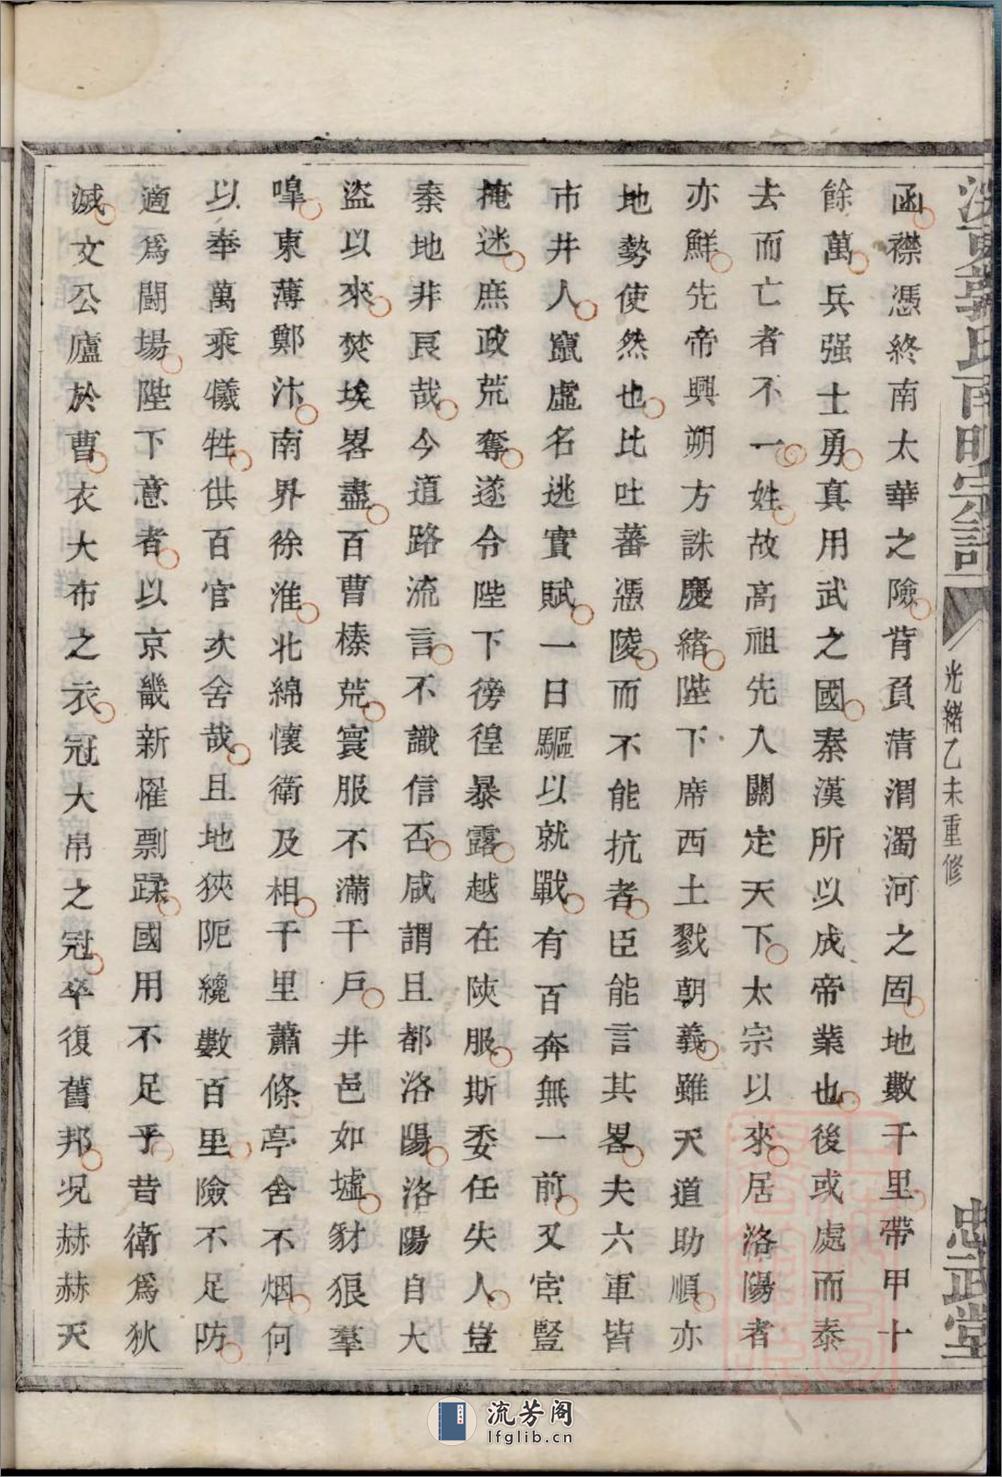 郭氏南明宗譜
光緒乙未重修
忠武堂
函襟憑終南太華之險背負清渭濁河之固地數千里帶甲十
餘萬兵强士勇真用武之國秦漢所以成帝業也後或處而泰
去而亡者不一姓故高祖先入關定天下太宗以來居洛陽者
亦鮮先帝興朔方誅慶緒陛下席西土戮朝義雖天道助順亦
地勢使然也比吐蕃憑陵而不能抗者臣能言其畧夫六軍皆
市井人竄虛名逃實賦一日驅以就戰有百奔無一前又宦豎
掩迷庶政荒奪遂令陛下徬徨暴露越在陝服斯委任失人豈
秦地非良哉今道路流言不識信否咸謂且都洛陽洛陽自大
盜以來焚埃畧盡百曹榛荒寰服不滿千戶井邑如墟豺狼羣
嘷東薄鄭汴南界徐淮北綿懷衛及相千里蕭條亭舍不烟何
以奉萬乘犧牲供百官次舍哉且地狹阨纔數百里險不足防
適爲鬬場陛下意者以京畿新罹剽蹂國用不足乎昔衛爲狄
滅文公廬於曹衣大布之衣冠大帛之冠卒復舊邦况赫赫天
流芳阁
lfglib.cn